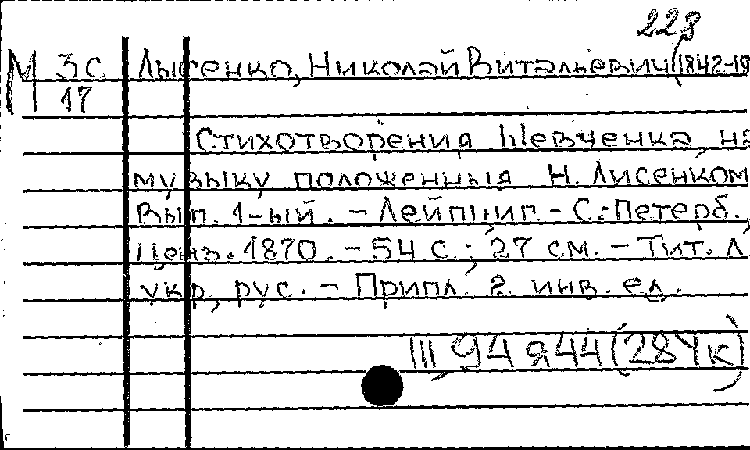 223
М 3С Лысенко, Николай Витальевич (1842-19
17
Стихотворения Шевченка, на
музыку положенныя Н. Лисенком
Вып. 1-ый. - Лейпциг. - С.-Петерб.,
Ценз. 1870. - 54 с.; 27 см. - Тит. л.
укр, рус. - Припл. 2. инв. ед.
III 94 я 44 (28Ук)